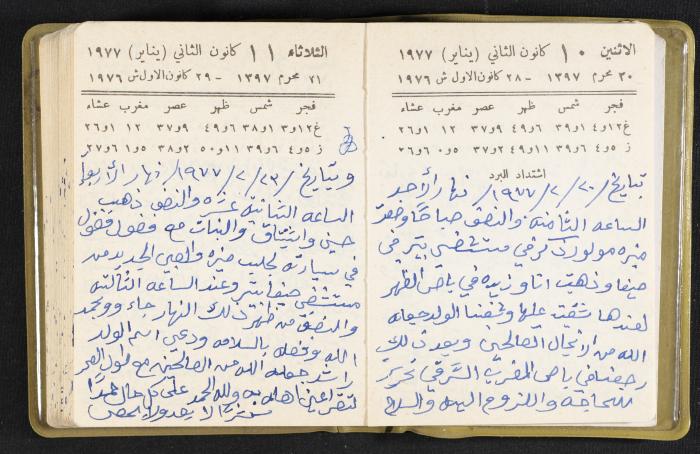 الاثنين ١٠ كانون الثاني (يناير) ١٩٧٧
٢٠ محرم ١٣٩٧ - ٢٨ كانون الاول ش ١٩٧٦
فجر شمس ظهر عصر مغرب عشاء
غ ١٢و٤ ١و٣٩ ٦و٤٩ ٩و٣٧ ١٢ ١و٢٦
ز ٥و٤ ٦و٣٩ ١١و٤٩ ٢و٣٧ ٥و٠ ٦و٢٦
اشتداد البرد
بتاريخ /٢٠/٢/١٩٧٧/ نهار الأحد
الساعه الثامنه والنصف صباحًا وضعت
منيره مولود ذكر في مستشفى
حيفا وذهبت انا وزيده في باص الظهر
لعندها الولد جعله
الله من الأنجال الصالحين وبعد ذلك
رجعنا في باص المغرب الشرقي
واللزوم اليه والسلام
الثلاثاء ١١ كانون الثاني (يناير) ١٩٧٧
٢١ محرم ١٣٩٧ - ٢٩ كانون الاول ش ١٩٧٦
فجر شمس ظهر عصر مغرب عشاء
غ ١٢و٣ ١و٣٨ ٦و٤٩ ٩و٣٧ ١٢ ١و٢٦
ز ٥و٤ ٦و٣٩ ١١و٥٠ ٢و٣٨ ٥و١ ٦و٢٧
وبتاريخ /٢٣/٢/١٩٧٧/ نهار الأربعاء
الساعه الثانية عشره والنصف ذهب
حسين والبنات مع فضول فضول
في سيارته لجلب منيره والصبي الجديد من
مستشفى حيفا وعند الساعه الثالثه
والنصف من ظهر ذلك النهار جاءوو بحمد
الله وفضله بالسلامه ودعي اسم الولد
راشد جعله الله من الصالحين مع طول العمر
لتقر اعين اهله به ولله الحمد على كل حال حمدًا
لا يعد ولا يحصى